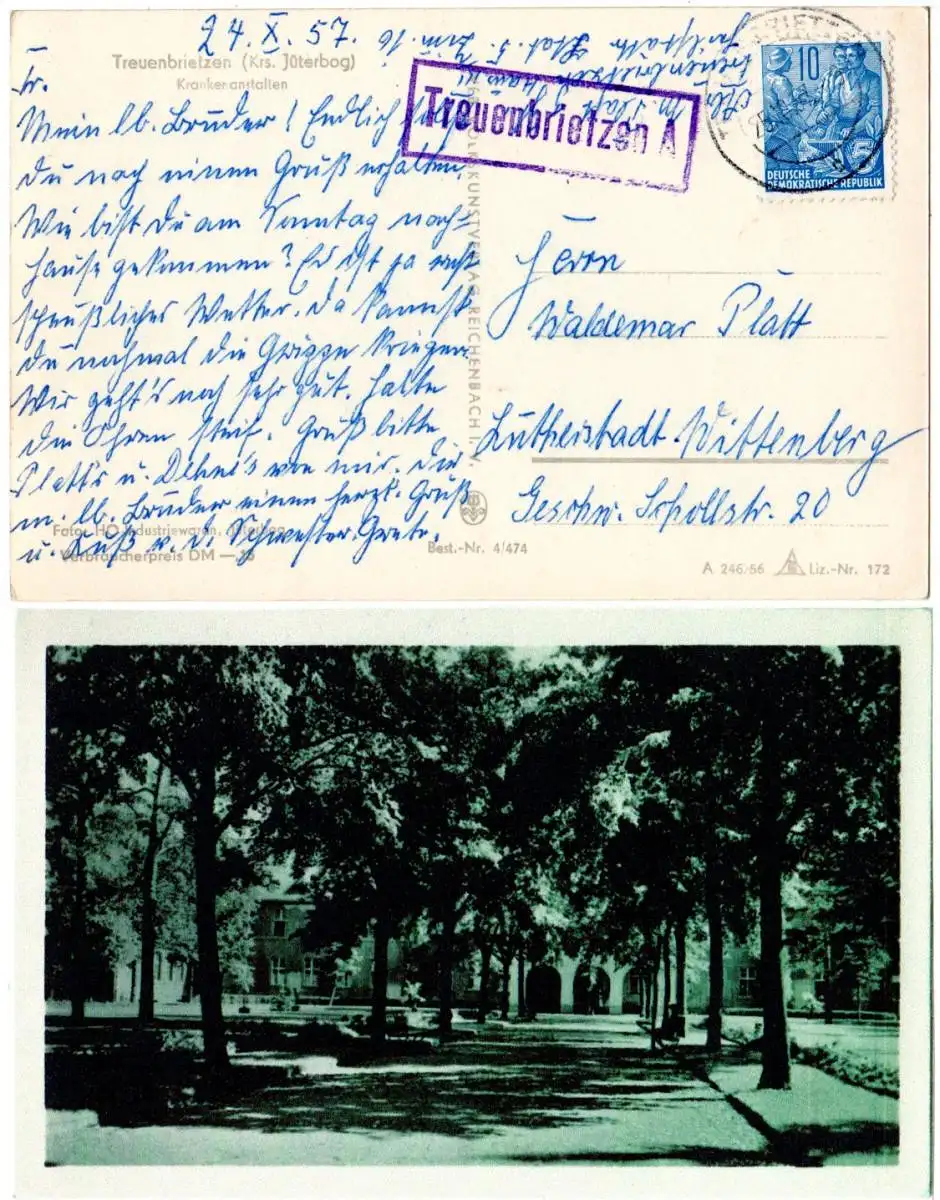 24. X. 57.
Treuenbrietzen (Krs. Jüterbog)
Krankenanstalten
Mein lb. Bruder! Endlich sollst
Du noch einen Gruß erhalten.
Wie bist Du am Sonntag nach-
hause gekommen? Es ist ja recht
scheußliches Wetter. Da kannst
Du nochmal die Grippe kriegen.
Mir geht's noch sehr gut. Halte
die Ohren steif. Grüß bitte
Platt's u. von mir. Dir
m. lb. Bruder einen herzl. Gruß
u. Kuß v. D. Schwester Grete.
Foto: HO Industriewaren, Jüterbog
Verbraucherpreis DM —.25
Abs. M. Platt
Treuenbrietzen
Stat. 5. Zim. 16
Treuenbrietzen A
VOLKSKUNSTVERLAG REICHENBACH I. V.
10
5
DEUTSCHE
DEMOKRATISCHE REPUBLIK
Herrn
Waldemar Platt
Lutherstadt Wittenberg
Geschw. Schollstr. 20
Best.-Nr. 4/474
A 246/56 Liz.-Nr. 172